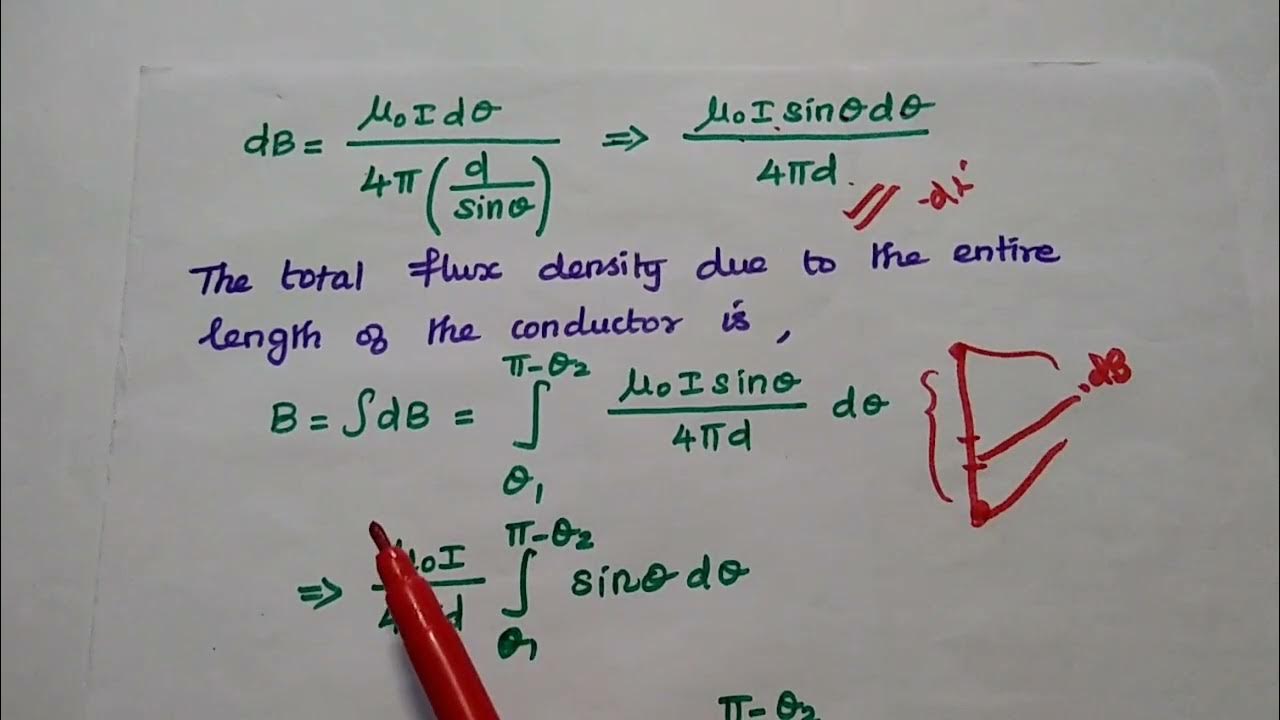 dB = μ₀ I dθ / 4π (d / sinθ) ⇒ μ₀ I sinθ dθ / 4πd
The total flux density due to the entire
length of the conductor is,
B = ∫dB = ∫_{θ₁}^{π-θ₂} μ₀ I sinθ / 4πd dθ
dB
⇒ μ₀I / 4πd ∫_{θ₁}^{π-θ₂} sinθ dθ
π-θ₂